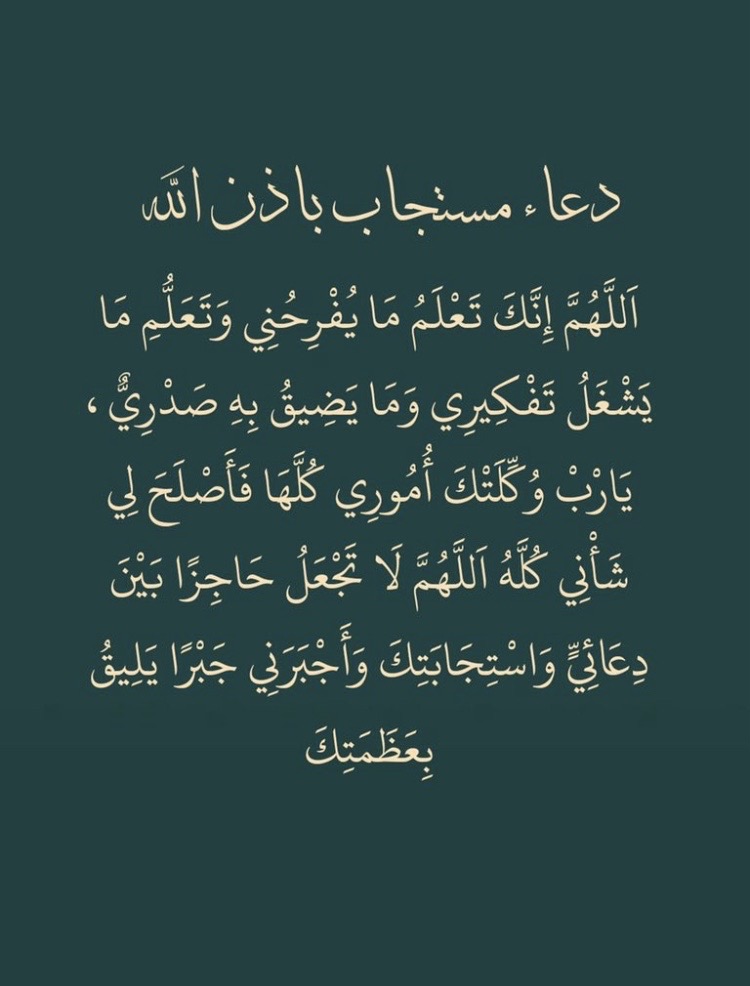 دعاء مستجاب باذن الله
اَللَّهُمَّ إِنَّكَ تَعْلَمُ مَا يُفْرِحُنِي وَتَعَلُّمِ مَا
يَشْغَلُ تَفْكِيرِي وَمَا يَضِيقُ بِهِ صَدْرِيٌّ ،
يَارْبْ وُكِّلَتْكَ أُمُورِي كُلَّهَا فَأَصْلَحَ لِي
شَأْنِي كُلَّهُ اَللَّهُمَّ لَا تَجْعَلُ حَاجِزًا بَيْنَ
دِعَائِيٍّ وَاسْتِجَابَتِكَ وَأَجْبَرَنِي جَبْرًا يَلِيقُ
بِعَظَمَتِكَ